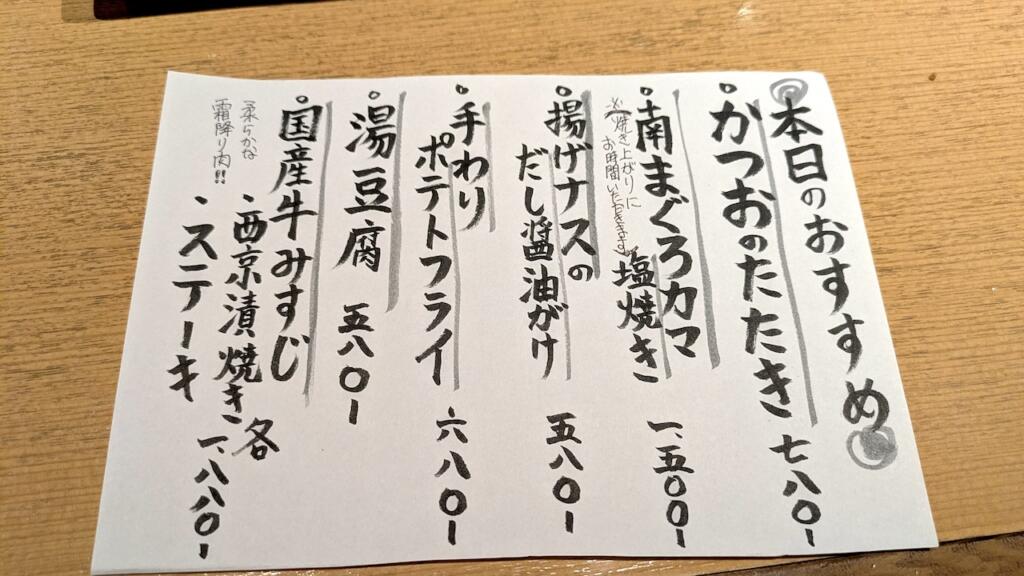 本日のおすすめ
・かつおのたたき 七八〇ー
・南まぐろカマ
塩焼き 一、五〇〇ー
※焼き上がりに
お時間いただきます
・揚げナスの
だし醤油がけ 五八〇ー
・手わり
ポテトフライ 六八〇ー
・湯豆腐 五八〇ー
・国産牛みすじ
・西京漬焼き 各
・ステーキ 一、八八〇ー
柔らかな
霜降り肉!!